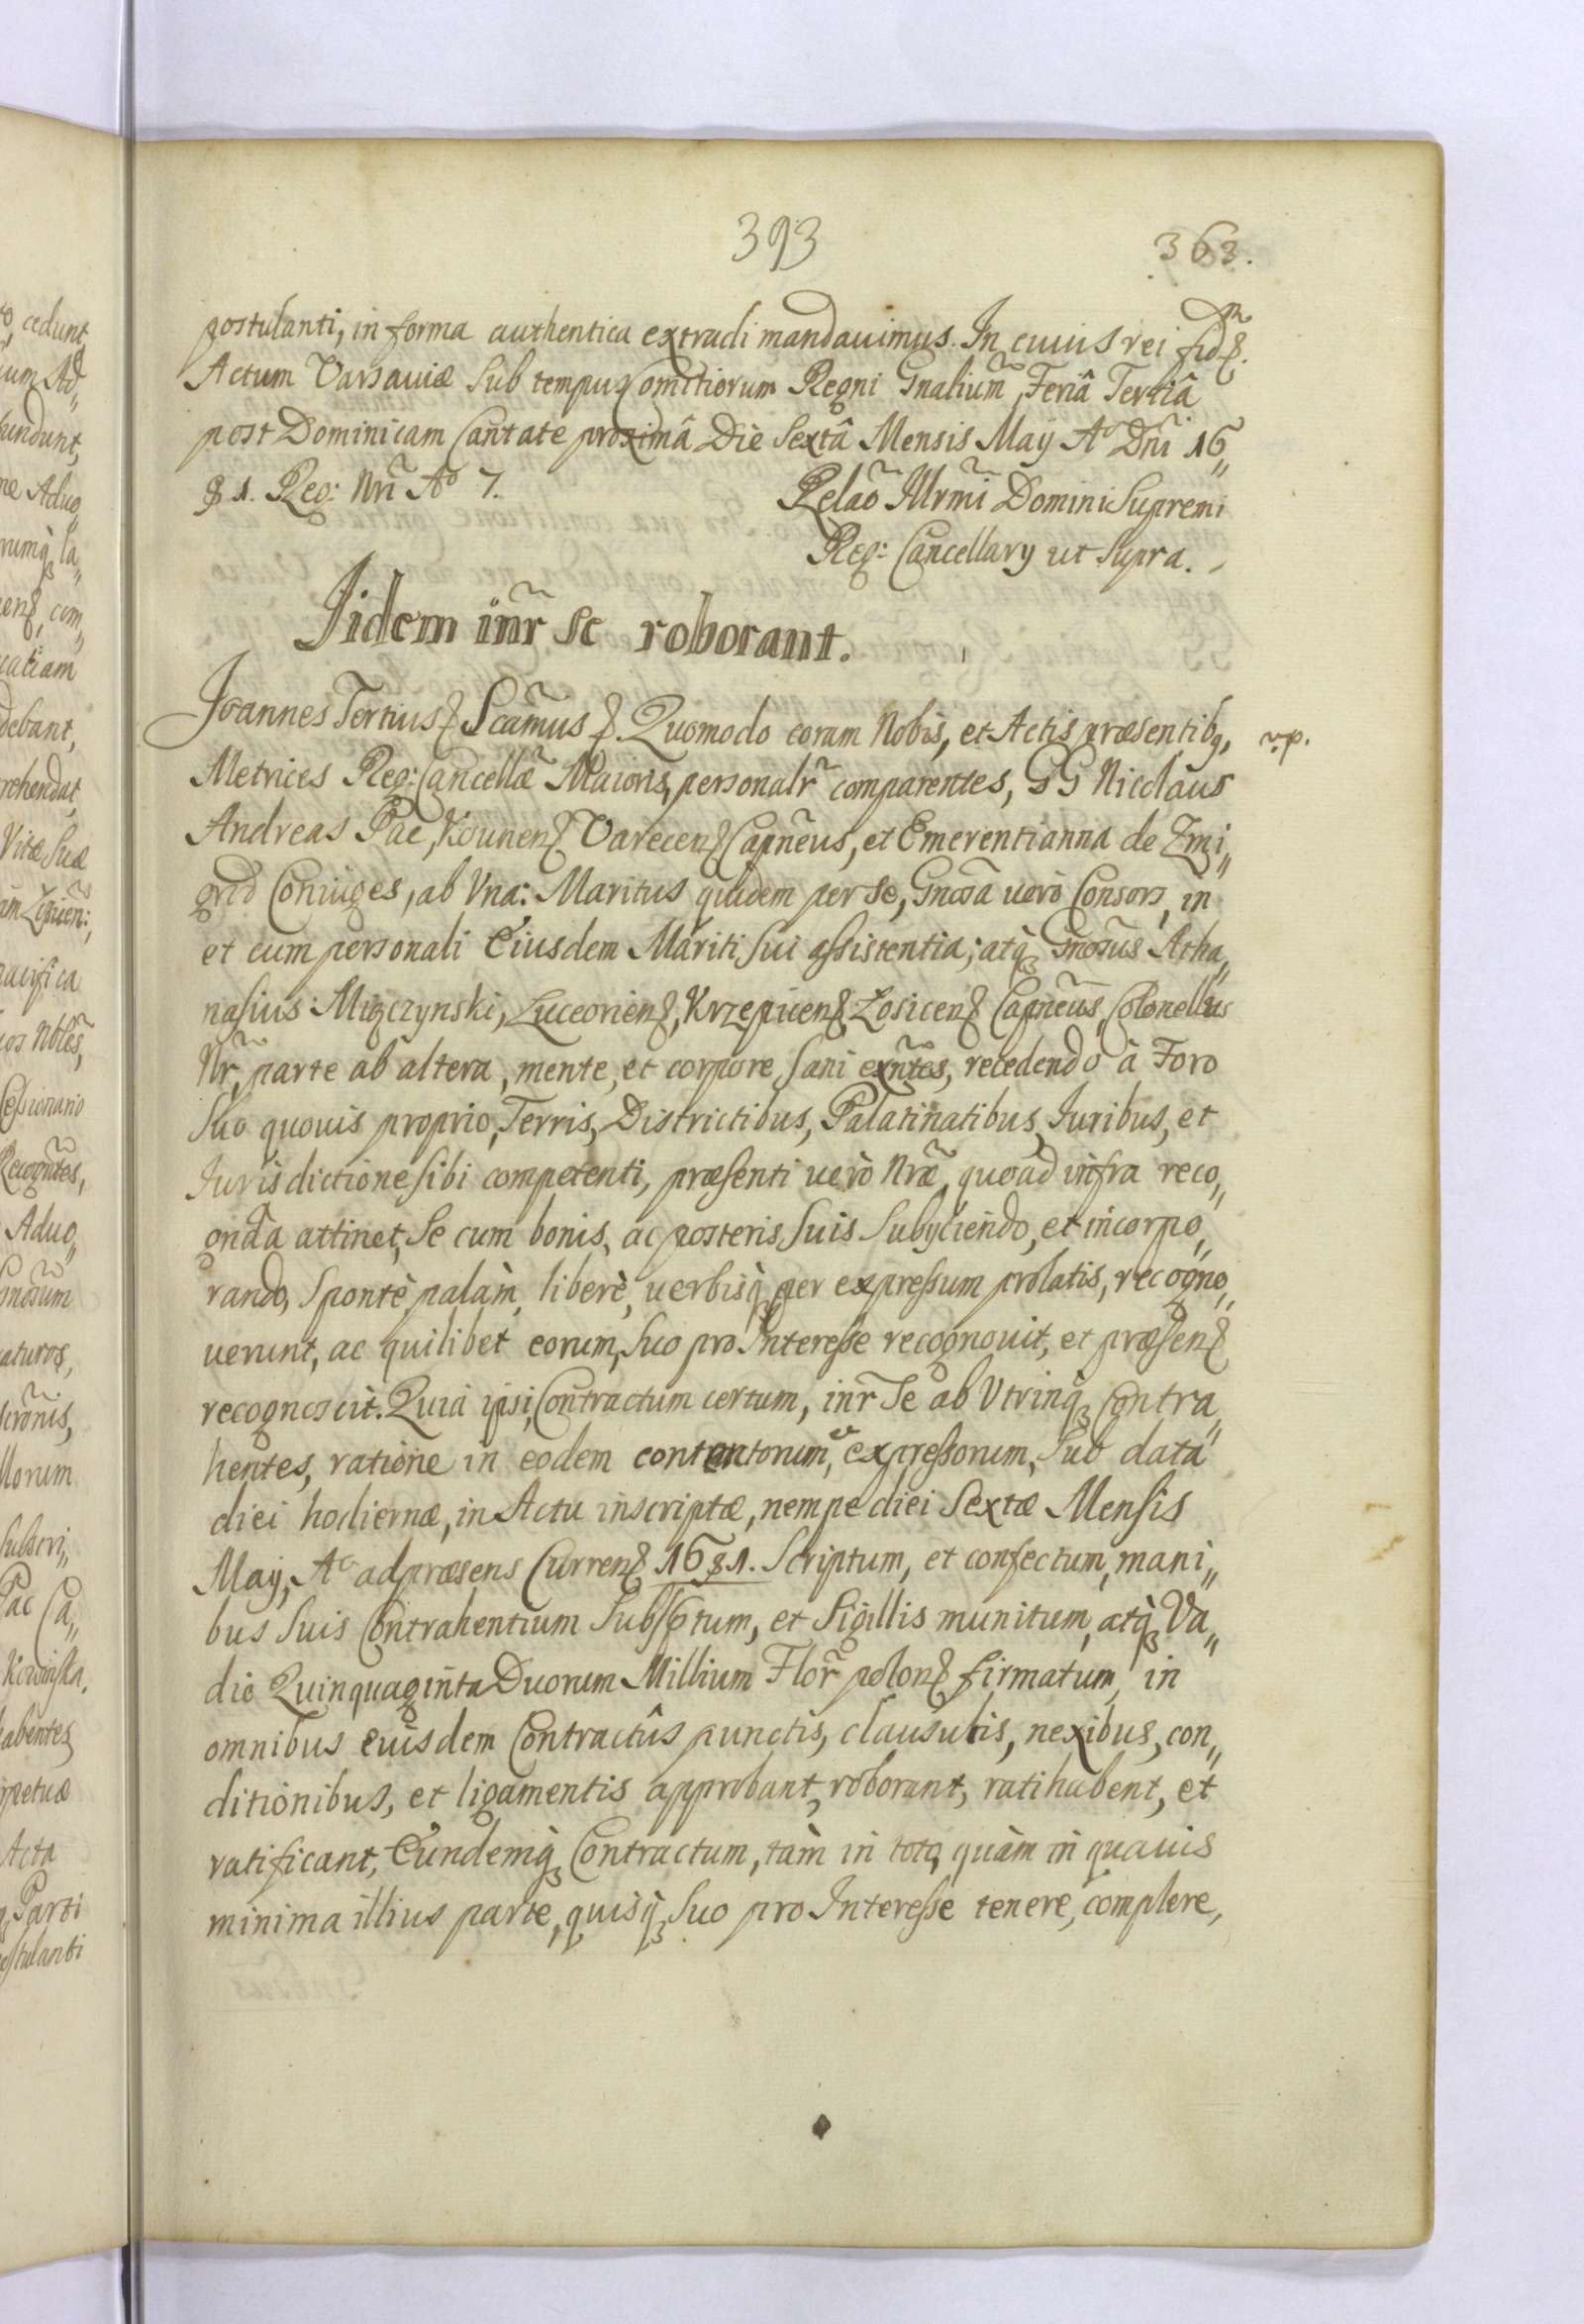 393
363.
postulanti, in forma authentica extradi mandauimus. In cuius rei fidm &.
Actum Varsauiæ Sub tempus Comitiorum Regni Gnalium, Feriâ Tertiâ
post Dominicam Cantate proximâ Die Sextâ Mensis Maÿ Aº Dñi 16„
81. Reg: Nri Aº 7.
Relaõ Illrmi Domini Supremi
Reg: Cancellarÿ ut Supra.
Iidem inr̃ se roborant.
Joannes Tertius & Scam̃us &. Quomodo coram Nobis, et Actis præsentibq,
v.p.
Metrices Reg: Cancellæ Maioris, personalr̃ comparentes, GG Nicolaus
Andreas Pac, Kounen& Varecen& Capñeus, et Emerentianna de Zmi„
grod Coniuges, ab Vna: Maritus quidem per se, Gnosa uerò Consors, in
et cum personali Eiusdem Mariti Sui assistentia; atq Gnosus Atha„
nasius Miączynski, Luceorien&, Krzepicen& Łosicen& Capñeus, Colonellus
Nr̃, parte ab altera, mente, et corpore Sani exñtes, recedendo à Foro
Suo quouis proprio, Terris, Districtibus, Palatinatibus, Iuribus, et
Iurisdictione sibi competenti, præsenti uerò Nræ, quoad infra reco„
gnda attinet, Se cum bonis, ac posteris Suis Subÿciendo, et incorpo„
rando, Spontè, palàm, liberè, uerbisq per expressum prolatis, recogno„
uerunt, ac quilibet eorum, Suo pro Interesse recognouit, et præsen&
recognoscit. Quia ipsi, Contractum certum, inr̃ Se ab Vtrinq Contra„
hentes, ratione in eodem contentorum, expressorum, Sub data
diei hodiernæ, in Actu inscriptæ, nempe diei Sextæ Mensis
Maÿ, Aº ad præsens Curren& 1681. Scriptum, et confectum, mani„
bus Suis Contrahentium Subsptum, et Sigillis munitum, atq Va„
dio Quinquaginta Duorum Millium Flor̃ polon& firmatum, in
omnibus euisdem Contractûs punctis, clausulis, nexibus, con„
ditionibus, et ligamentis approbant, roborant, ratihabent, et
ratificant, Eundemq Contractum, tàm in toto, quàm in quauis
minima illius parte, quisq Suo pro Interesse tenere, complere,